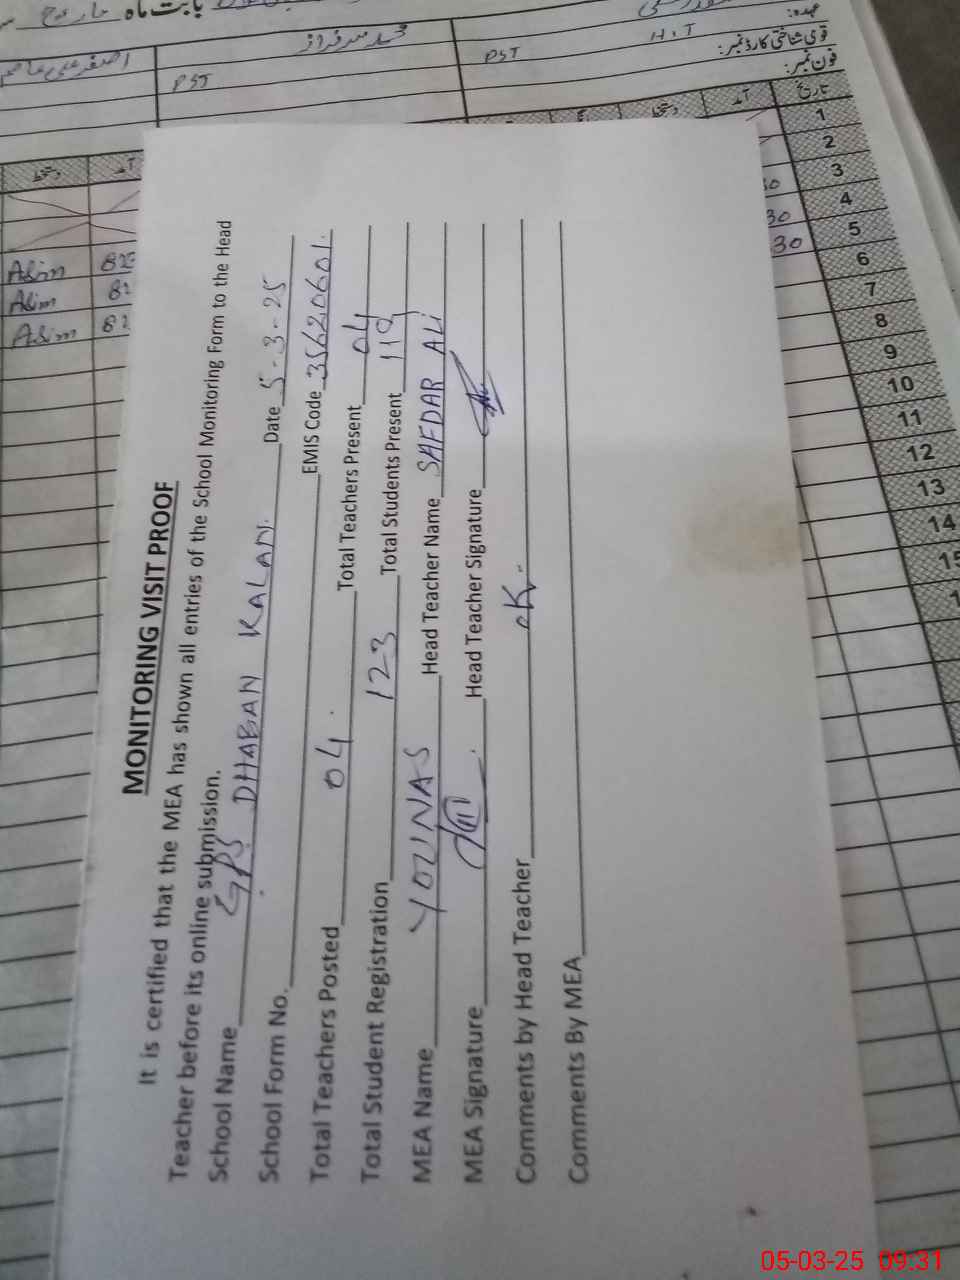 بابت ماہ مارچ
عہدہ:
قومی شناختی کارڈ نمبر:
فون نمبر:
محمد سرفراز
PST
PST
H.T
تاریخ
آمد
دستخط
دستخط
آمد
1
2
3
4
5
6
7
8
9
10
11
12
13
14
15
30
30
Asim
Asim
Asim
MONITORING VISIT PROOF
It is certified that the MEA has shown all entries of the School Monitoring Form to the Head
Teacher before its online submission.
School Name GPS DHABAN KALAN. Date 5-3-25
School Form No. EMIS Code 35620601.
Total Teachers Posted 04. Total Teachers Present 04
Total Student Registration 123 Total Students Present 119
MEA Name YOUNAS Head Teacher Name SAFDAR ALI
MEA Signature Head Teacher Signature
Comments by Head Teacher OK
Comments By MEA
05-03-25 09:31